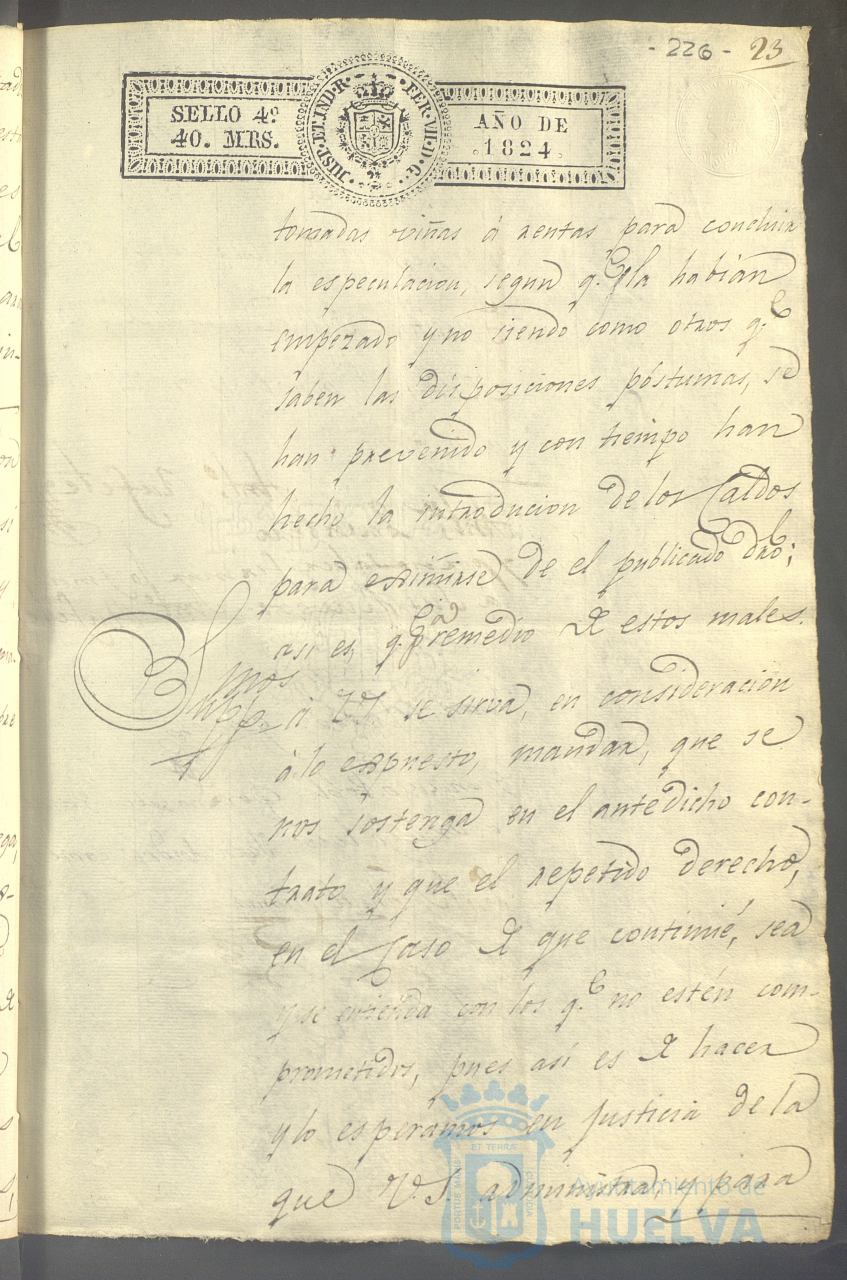 - 226 - 23
SELLO 4º
40. MRS.
HISP. ET. IND. R. FER. VII. D. G.
AÑO DE
1824
tomadas viñas á rentas para concluir
la especulacion, segun q.e la habian
empezado y no siendo como otros q.e
saben las disposiciones póstumas, se
han prevenido y con tiempo han
hecho la introducion de los Caldos
para eximirse de el publicado dro;
asi es, q.e pa remedio de estos males.
Suppcamos á VS se sirva, en consideración
á lo expuesto, mandar, que se
nos sostenga en el antedicho con-
trato y que el repetido derecho,
en el Caso de que continúé, sea
y se entienda con los q.e no estén com-
prometidos, pues así es de hacer
y lo esperamos en Justicia de la
que V.S. administra, y para
PORTUS MARIS ET TERRAE CUSTODIA
Ayuntamiento de
HUELVA